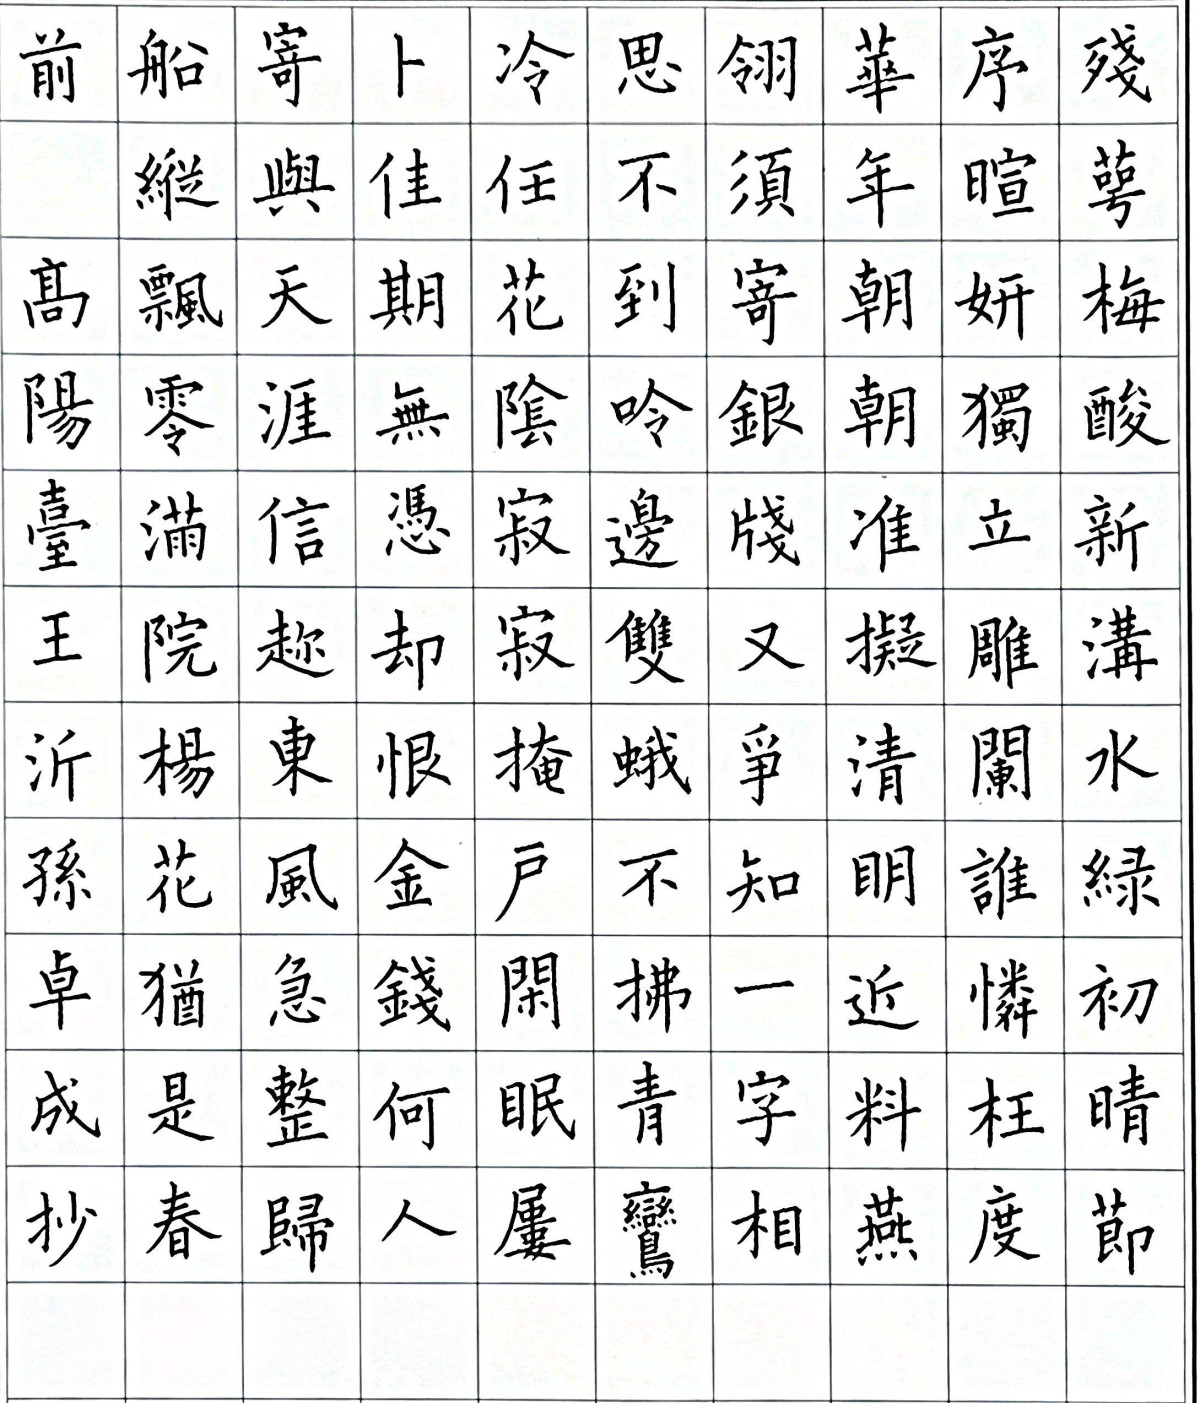 殘萼梅酸新溝水綠初晴節
序暄妍獨立雕闌誰憐枉度
華年朝朝准擬清明近料燕
翎須寄銀牋又爭知一字相
思不到呤邊雙蛾不拂青鸞
冷任花陰寂寂掩戶閑眠屢
卜佳期無憑却恨金錢何人
寄與天涯信趂東風急整歸
船縱飄零滿院楊花猶是春
前　高陽臺王沂孫卓成抄